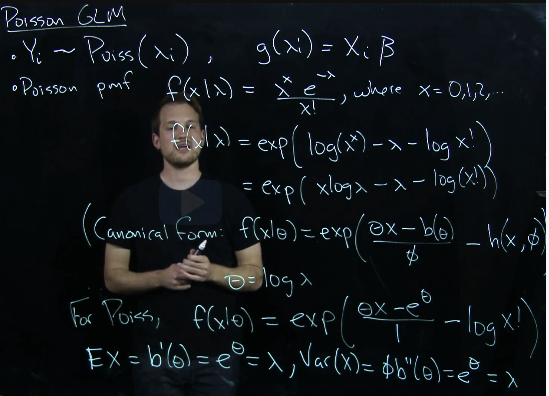 Poisson GLM
• Yi ~ Poiss(λi), g(λi) = Xi β
• Poisson pmf f(x|λ) = λ^x e^-λ / x!, where x = 0,1,2,...
f(x|λ) = exp(log(λ^x) - λ - log x!)
= exp(x log λ - λ - log(x!))
(Canonical form: f(x|θ) = exp(θx - b(θ) / ϕ - h(x,ϕ)
θ = log λ
For Poiss, f(x|θ) = exp(θx - e^θ / 1 - log x!)
EX = b'(θ) = e^θ = λ, Var(X) = ϕb''(θ) = e^θ = λ